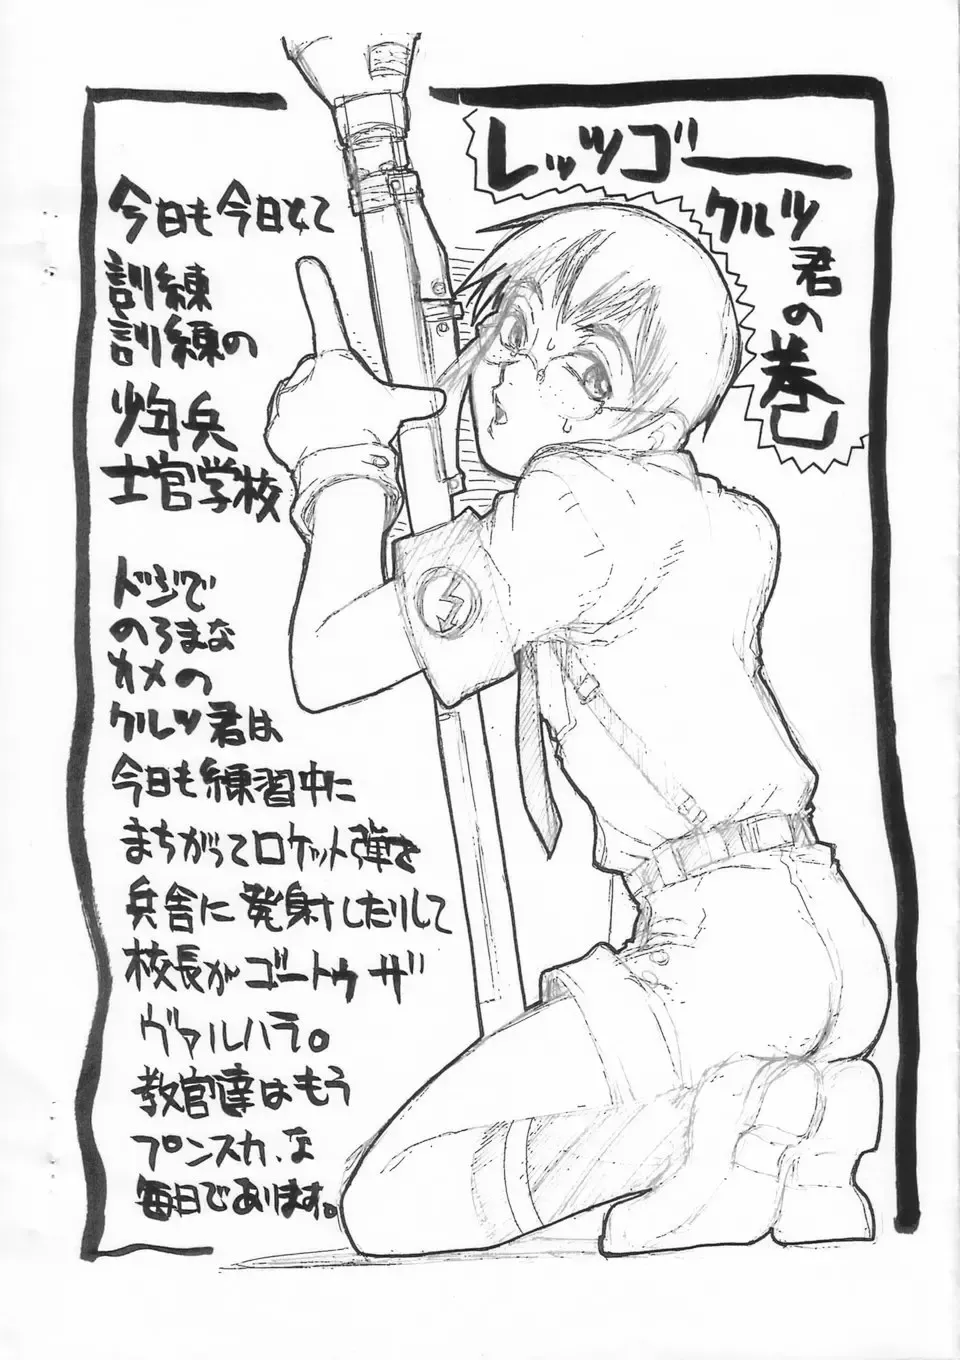 レッツゴー
クルツ
君の
巻
今日も今日とて
訓練
訓練の
少年兵
士官学校
ドジで
のろまな
カメの
クルツ君は
今日も練習中に
まちがってロケット弾を
兵舎に発射したりして
校長がゴートゥザ
ヴァルハラ。
教官達はもう
プンスカ、な
毎日であります。